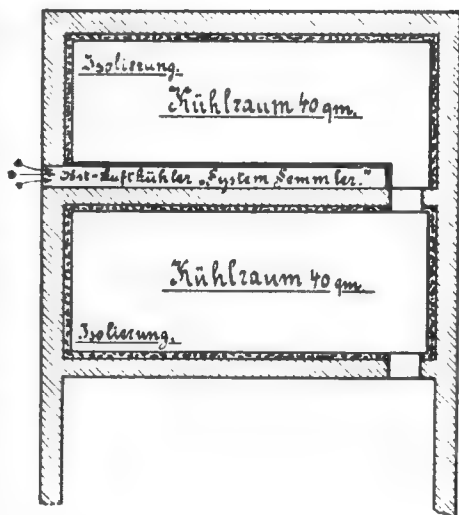 Isolierung.
Kühlraum 40 qm.
Obst-Luftkühler „System Semmler."
Kühlraum 40 qm.
Isolierung.